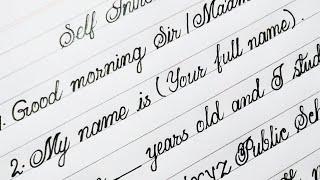 Self
1. Good morning Sir / Maam
2. My name is (Your full name).
years old and I
xyz Public